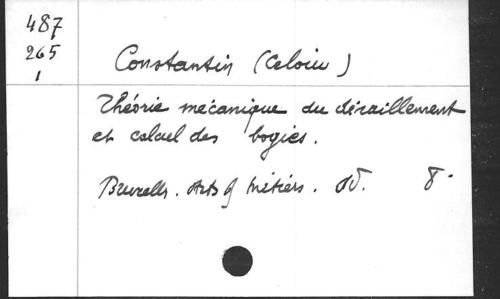 487
265
1
Constantin (Celoiu)
Théorie mécanique du déraillement
et calcul des bogies.
Bruxelles. Arts & Métiers. sd. 8°